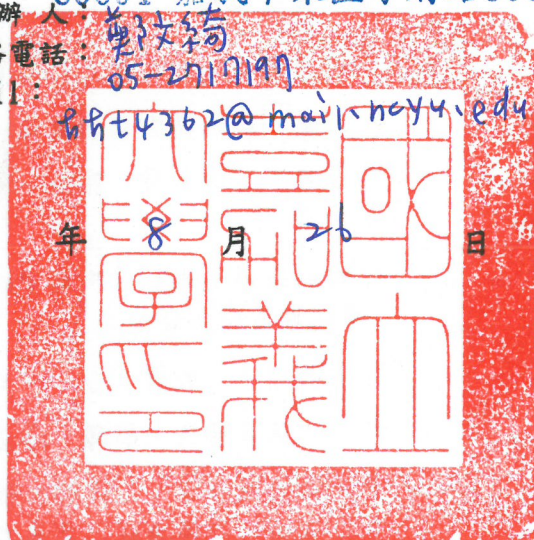 辦 人：鄭玟綺
電話：05-2717197
hht4362@mail.ncyu.edu
年 8 月 26 日
國立
嘉義
大學印